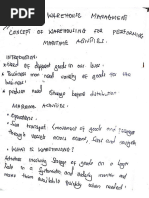 WAREHOUSE MANAGEMENT
CONCEPT OF WAREHOUSING FOR PERFORMING
MARITIME ACTIVITIES:
INTRODUCTION:
Need of different goods in our lives.
Business men need variety of goods for the
use
produce need storage before distribution
MARITIME ACTIVITIES:
Operations:
Sea transport (movement of goods and
through vessels across oceans, seas and
WHAT IS WAREHOUSING?
Activities involving storage of goods on a large
in a systematic and orderly manner and
make them available readily when needed.